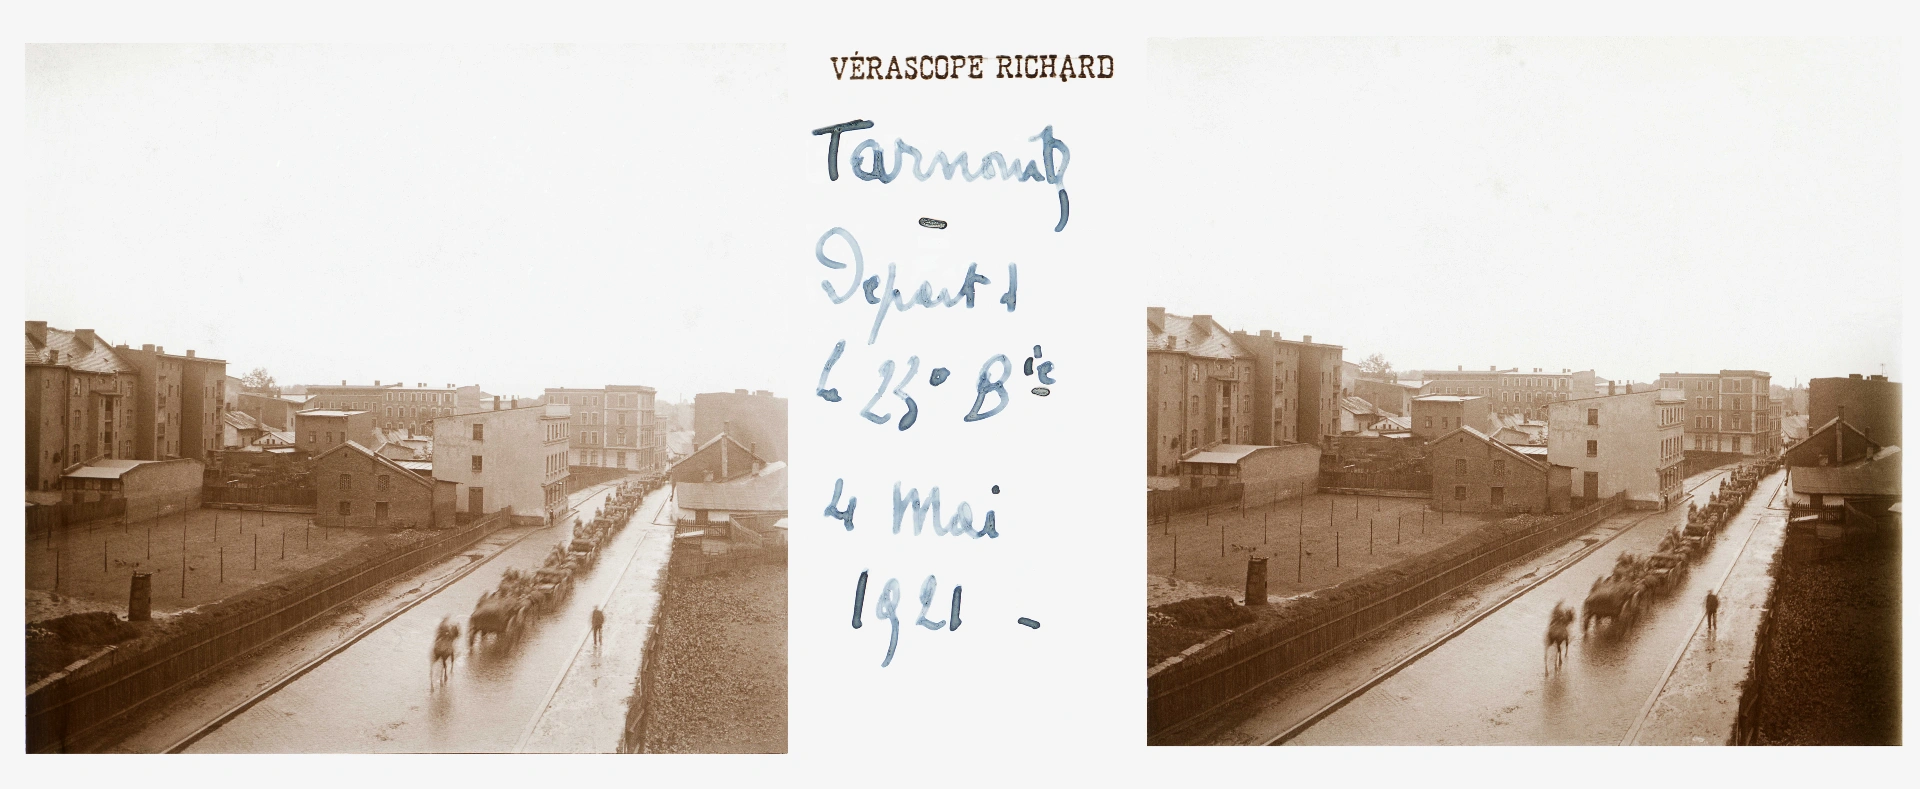 VÉRASCOPE RICHARD
Tarnowitz
-
Depart d
L 25° Bie
4 Mai
1921 -